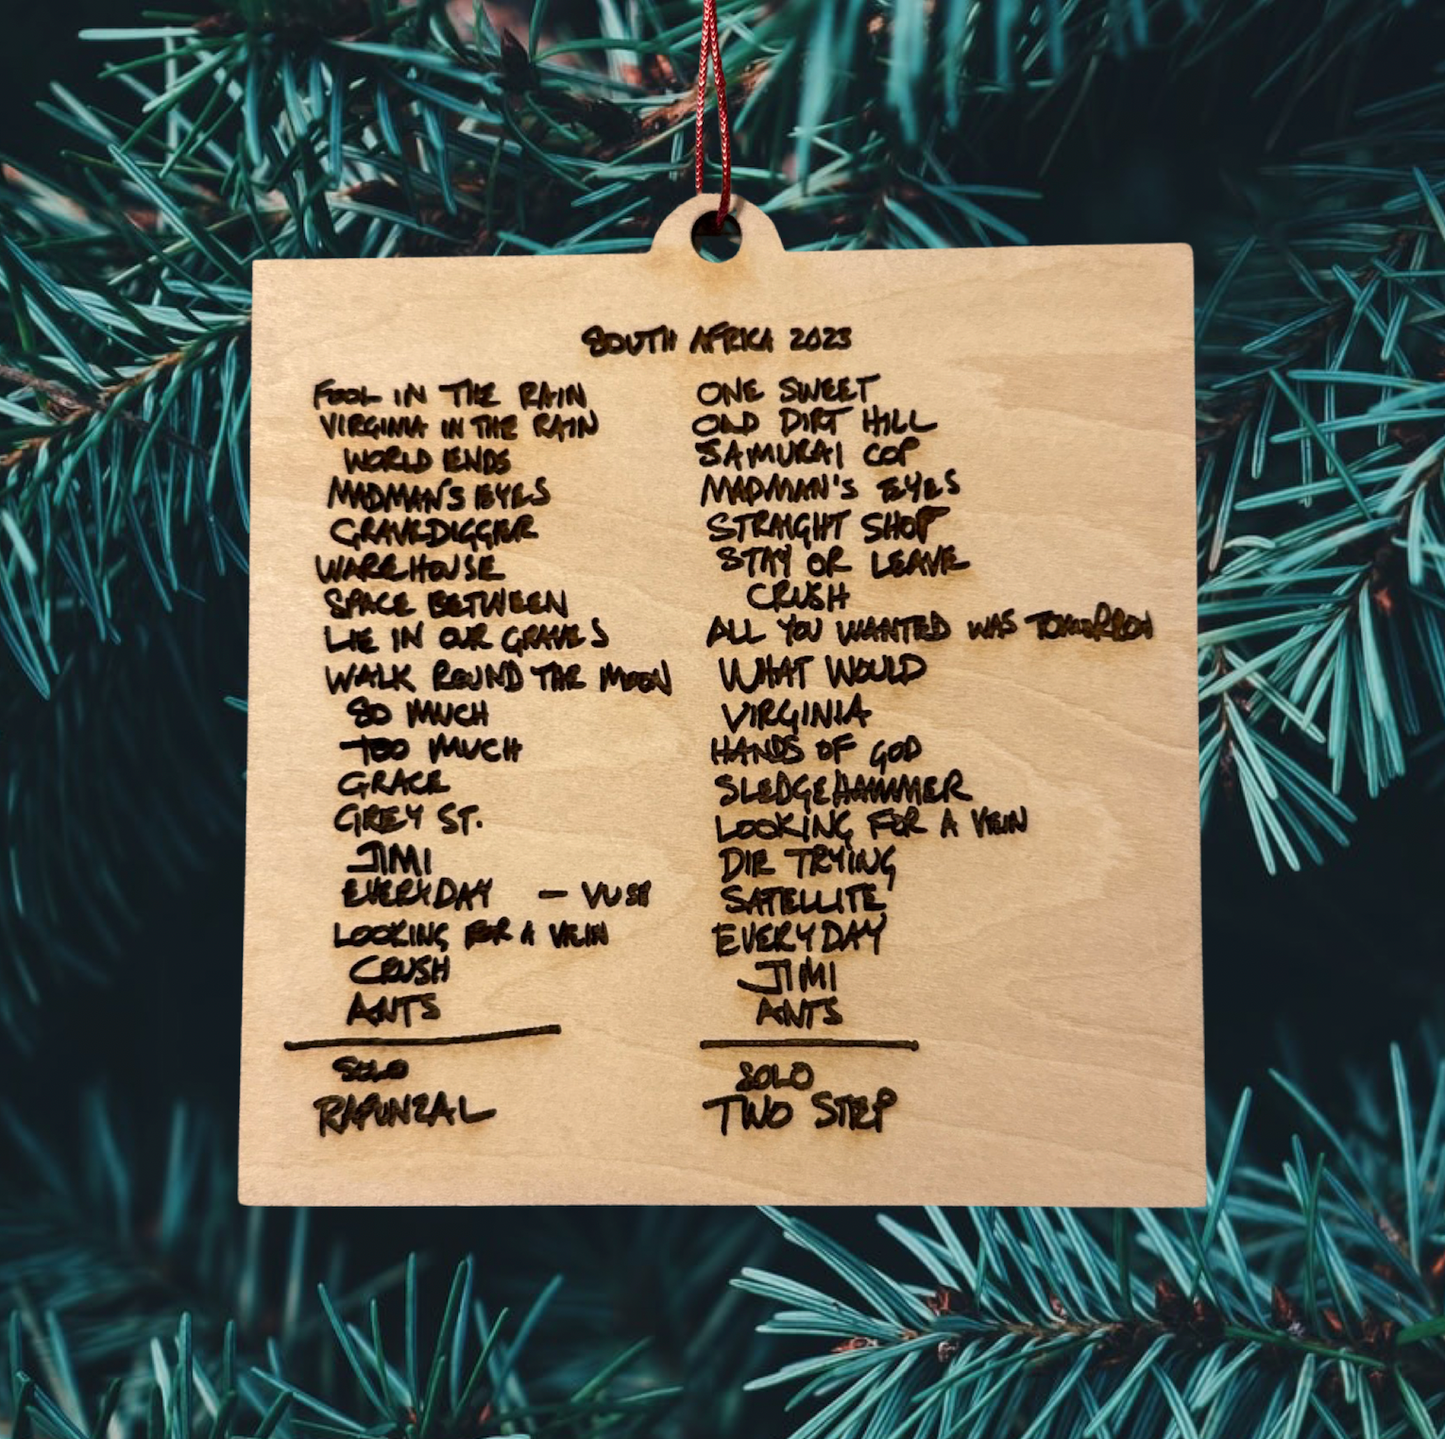 SOUTH AFRICA 2023
FOOL IN THE RAIN
VIRGINIA IN THE RAIN
WORLD ENDS
MADMAN'S EYES
GRAVEDIGGER
WAREHOUSE
SPACE BETWEEN
LIE IN OUR GRAVES
WALK ROUND THE MOON
SO MUCH
TOO MUCH
GRACE
GREY ST.
JIMI
EVERYDAY — VUSI
LOOKING FOR A VEIN
CRUSH
ANTS
SOLO
RAPUNZAL
ONE SWEET
OLD DIRT HILL
SAMURAI COP
MADMAN'S EYES
STRAIGHT SHOT
STAY OR LEAVE
CRUSH
ALL YOU WANTED WAS TOMORROW
WHAT WOULD
VIRGINIA
HANDS OF GOD
SLEDGEHAMMER
LOOKING FOR A VEIN
DIE TRYING
SATELLITE
EVERYDAY
JIMI
ANTS
SOLO
TWO STEP